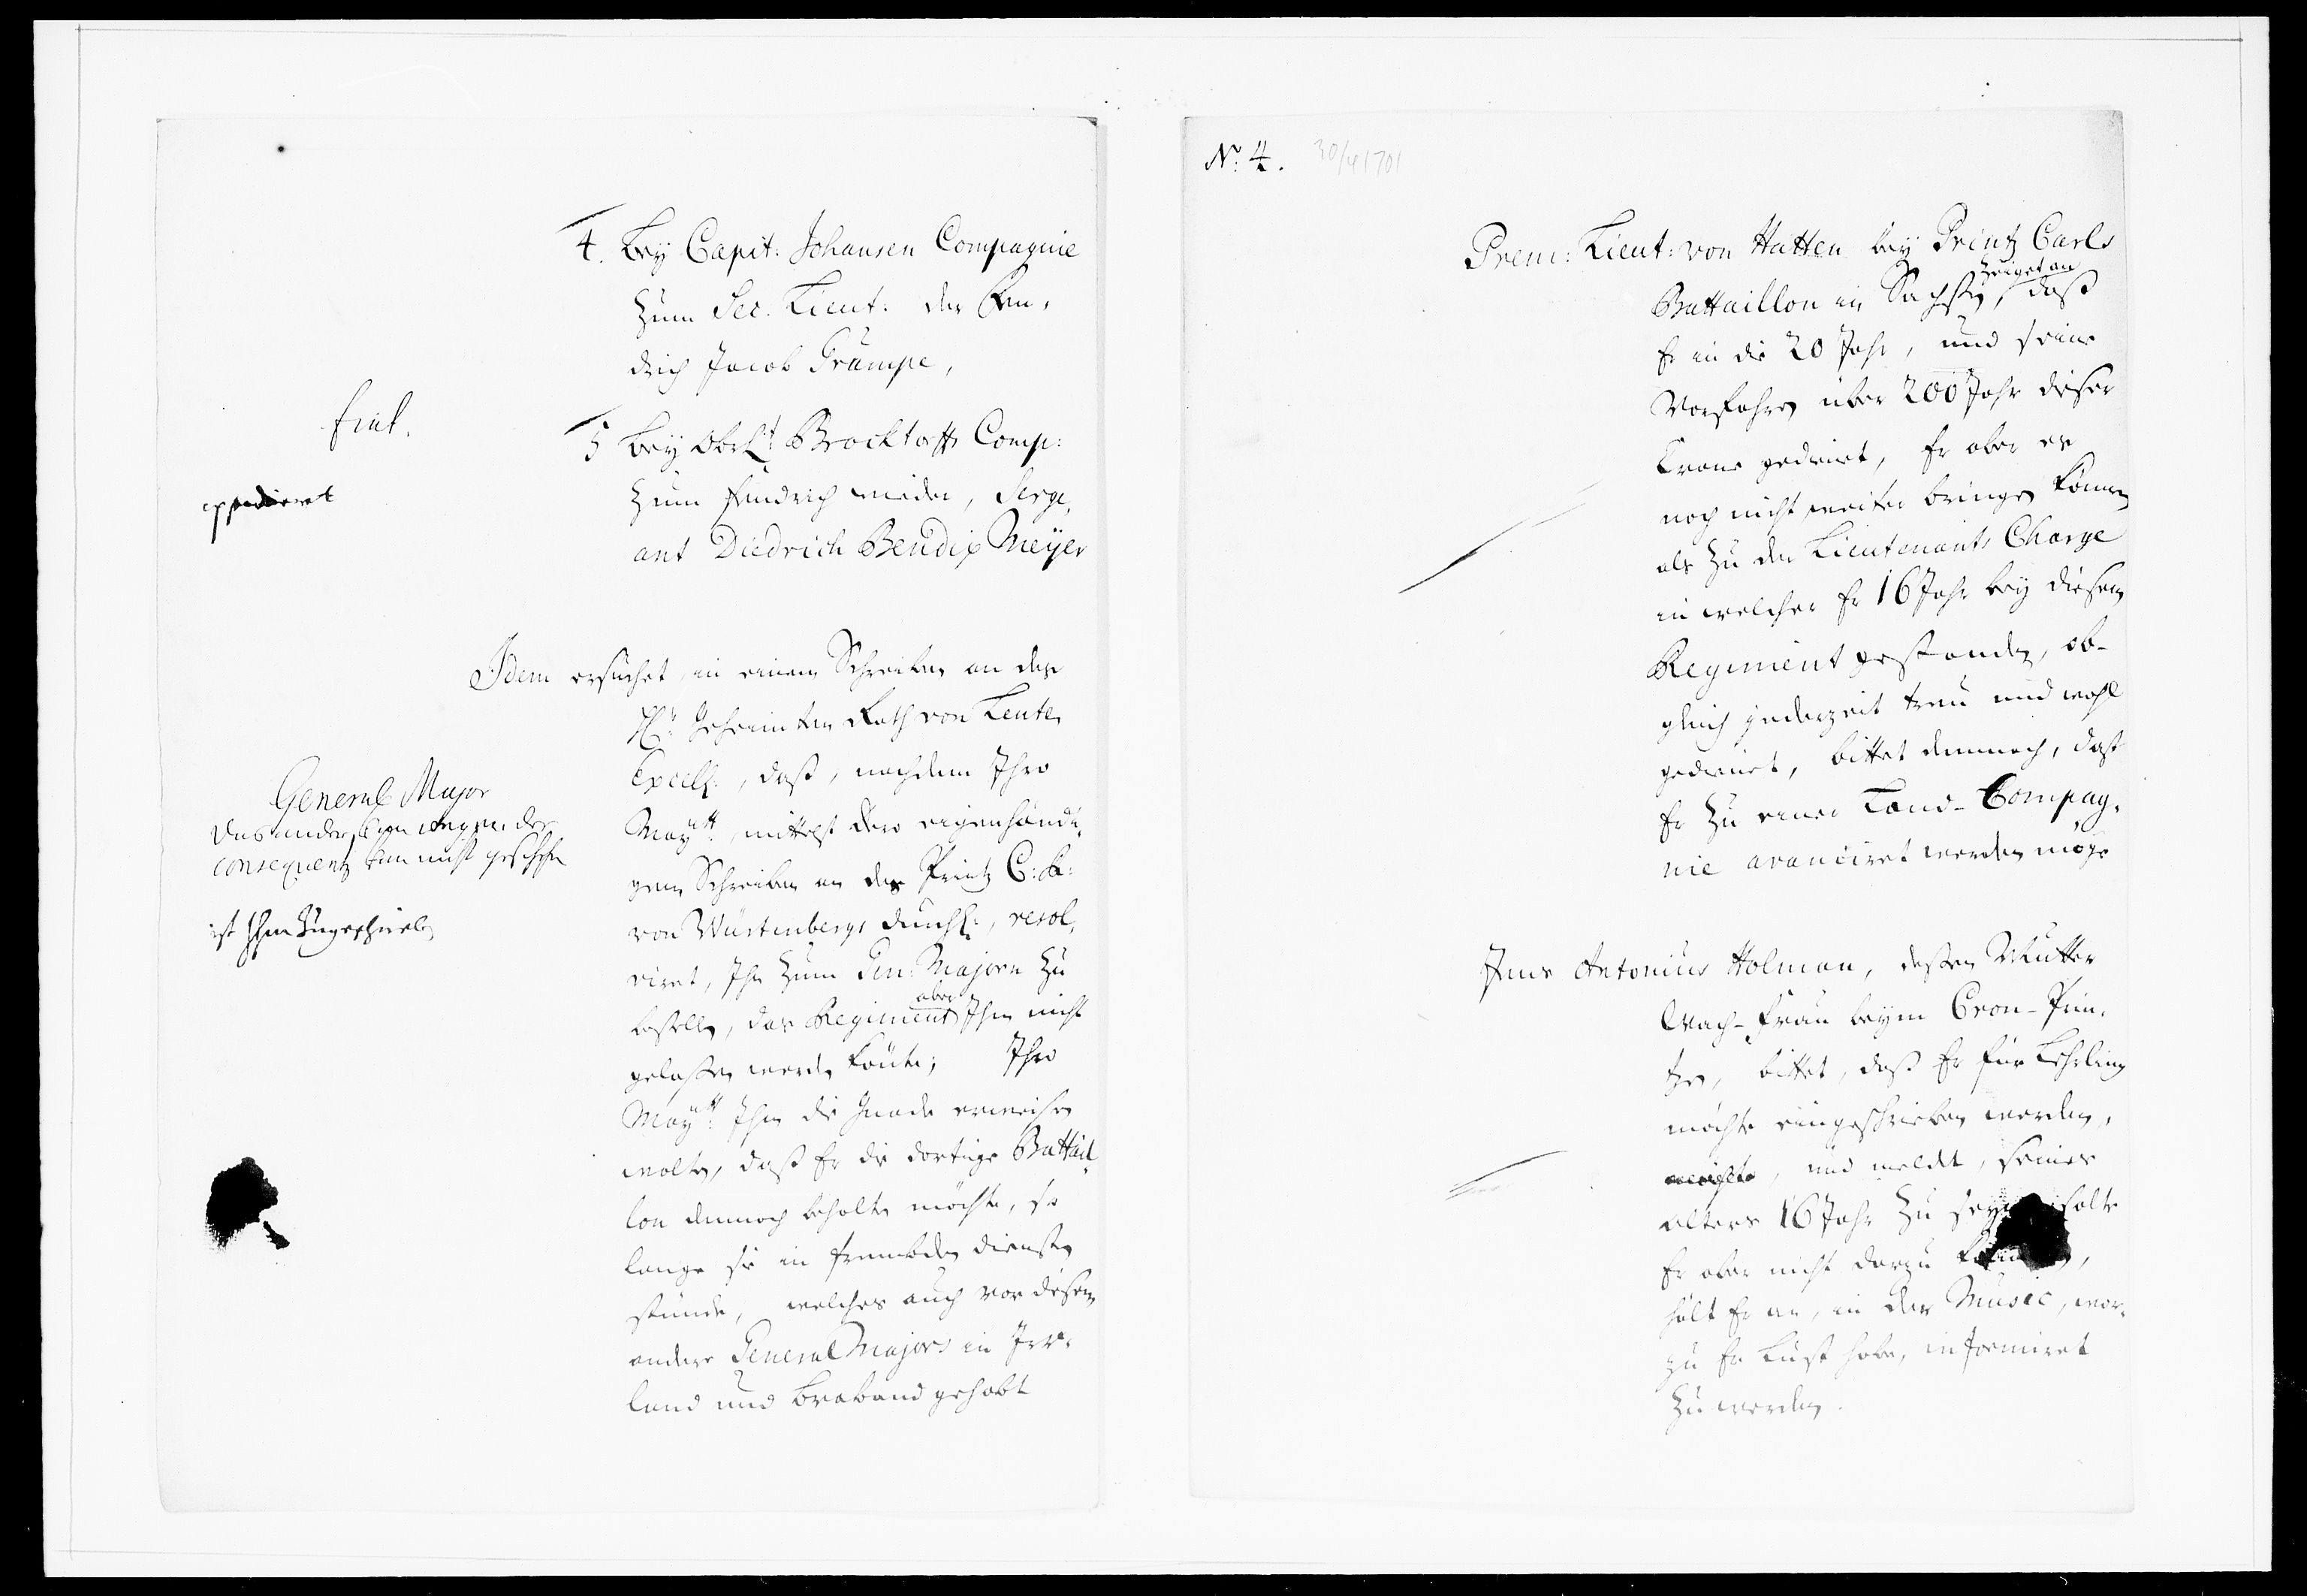 4. bey Capit: Johansen Compagnie
zum Sec. Lieut: der Fen,
drich Jacob Trampe,
fiat.
5 bey Obrl.t Brocktorffs Comp:
expedieret
zum Fendrich wieder, Serge,
ant Diedrich Bendix Meyer
Idem ersuchet, in einem Schreiben an des
H.r Geheimten Rath von Lente,
Excell:, daß, nachdem Ihro
General Major
May.tt, mittelst dero eigenhändi,
das andere wegen der
consequentz kan nicht geschehen
gem Schreiben an des Printz C: R:
ist Ihm zugeschrieben
von Würtenbergs Durchl:, resol,
viret, Ihn zum Gen: Majorn zu
bestellen, das Regiment aber Ihm nicht
gelaßen werden könte; Ihro
May.tt Ihm die Gnade erweisen
wolten, daß Er die dortige Battail,
lon dennoch behalten möchte, so
lange sie in frembden diensten
stünde, welches auch vor diesem
andere General Majors in Irr,
land und Braband gehabt
No: 4. 30/4 1701
Prem: Lieut: von Hatten bey Printz Carls
Battaillon in Sachsen, zeiget an daß
Er in die 20 Jahr, und seine
Vorfahren über 200 Jahr dieser
Crone gedienet, Er aber es
noch nicht weiter bringen können
als zu der Lieutenants Charge
in welcher Er 16 Jahr bey diesem
Regiment gestanden, ob-
gleich jederzeit treu und wohl
gedienet, bittet demnach, daß
Er zu einer Land-Compag,
nie avanciret werden möge
Jens Antonius Holman, deßen Mutter
Wach-Frau beym Cron-Prin,
tzen, bittet, daß Er für Lehrling
möchte eingeschrieben werden,
möchte, und meldet, seines
alters 16 Jahr zu seyn, solte
Er aber nicht darzu kommen,
hält Er an, in der Music, wor,
zu Er Lust habe, informiret
zu werden.